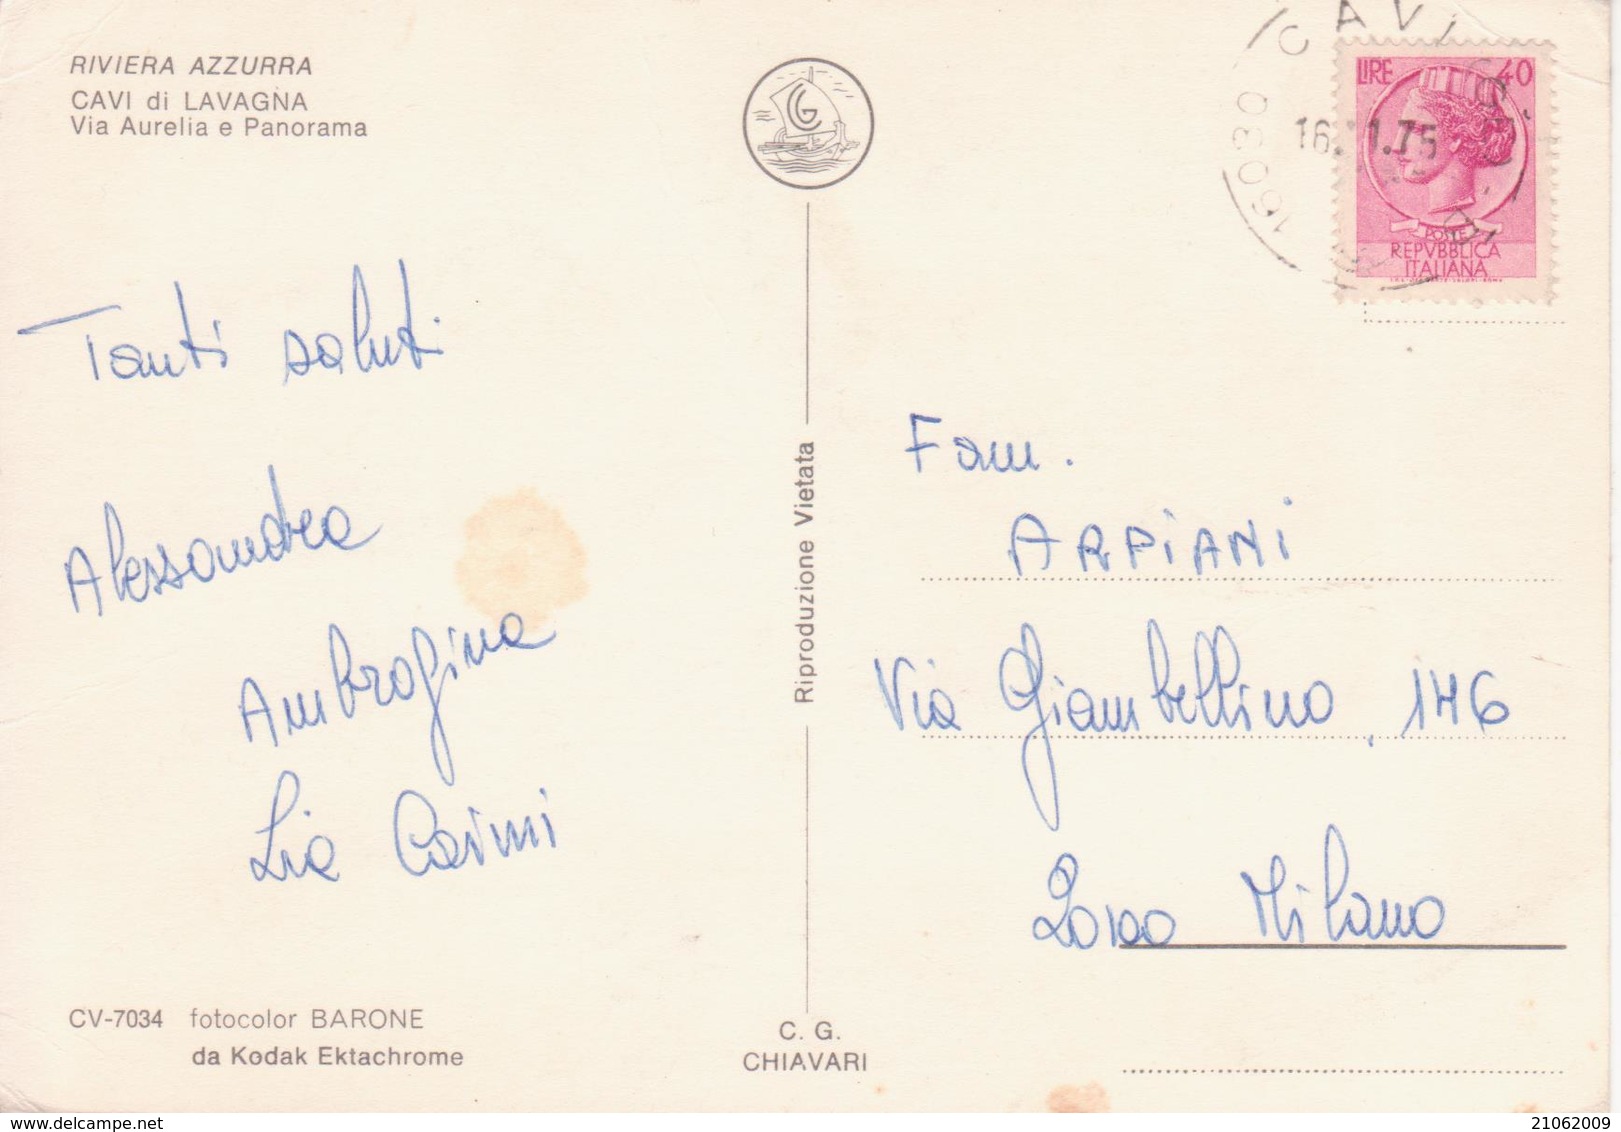 RIVIERA AZZURRA
CAVI di LAVAGNA
Via Aurelia e Panorama
Tanti saluti
Alessandra
Ambrogina
Lia Carini
CV-7034 fotocolor BARONE
da Kodak Ektachrome
CG
Riproduzione Vietata
C. G.
CHIAVARI
16030 CAVI
LIRE 40
POSTE
REPVBBLICA
ITALIANA
Fam.
ARPIANI
Via Giambellino, 146
20100 Milano
delcampe.net
21062009